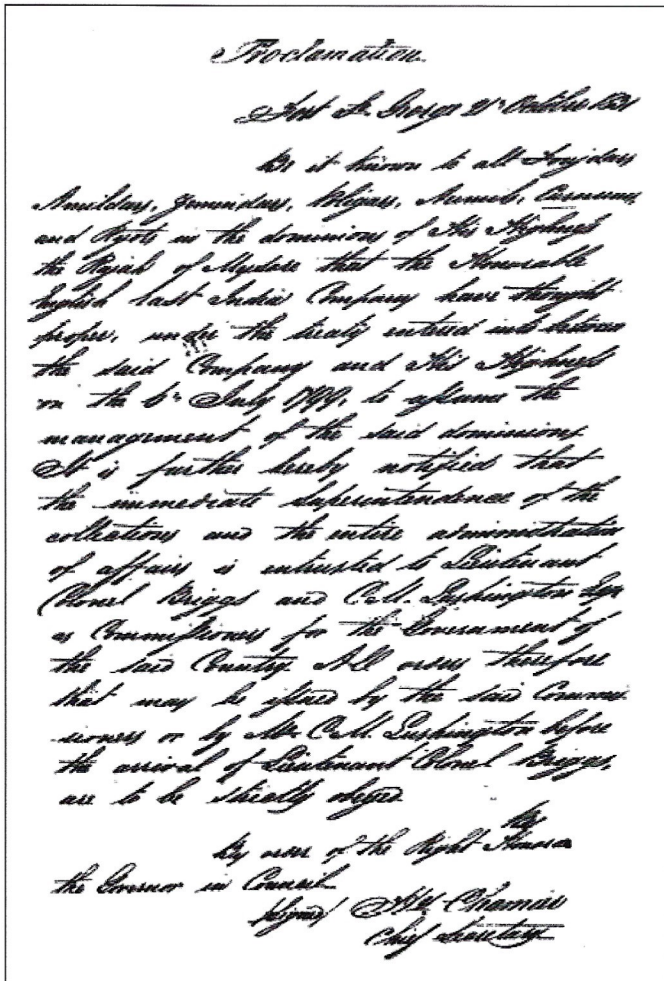 Proclamation.
Fort St. George 21st October 1831
Be it known to all Foujdars
Amildars, Zemindars, Poligars,
and Ryots in the dominions of His Highness
the Rajah of Mysore that the Honorable
English East India Company have thought
proper, under the treaty entered into between
the said Company and His Highness
on the 6th July 1799, to assume the
management of the said dominions
It is further hereby notified that
the immediate superintendence of the
collections and the entire administration
of affairs is entrusted to Lieutenant
Colonel Briggs and C.M. Lushington Esqr
as Commissioners for the Government of
the said Country. All orders therefore
that may be issued by the said Commis-
sioners or by Mr. C.M. Lushington before
the arrival of Lieutenant Colonel Briggs,
are to be strictly obeyed
By order of the Right Honora
the Governor in Council
Signed/ Chamier
Chief Secretary